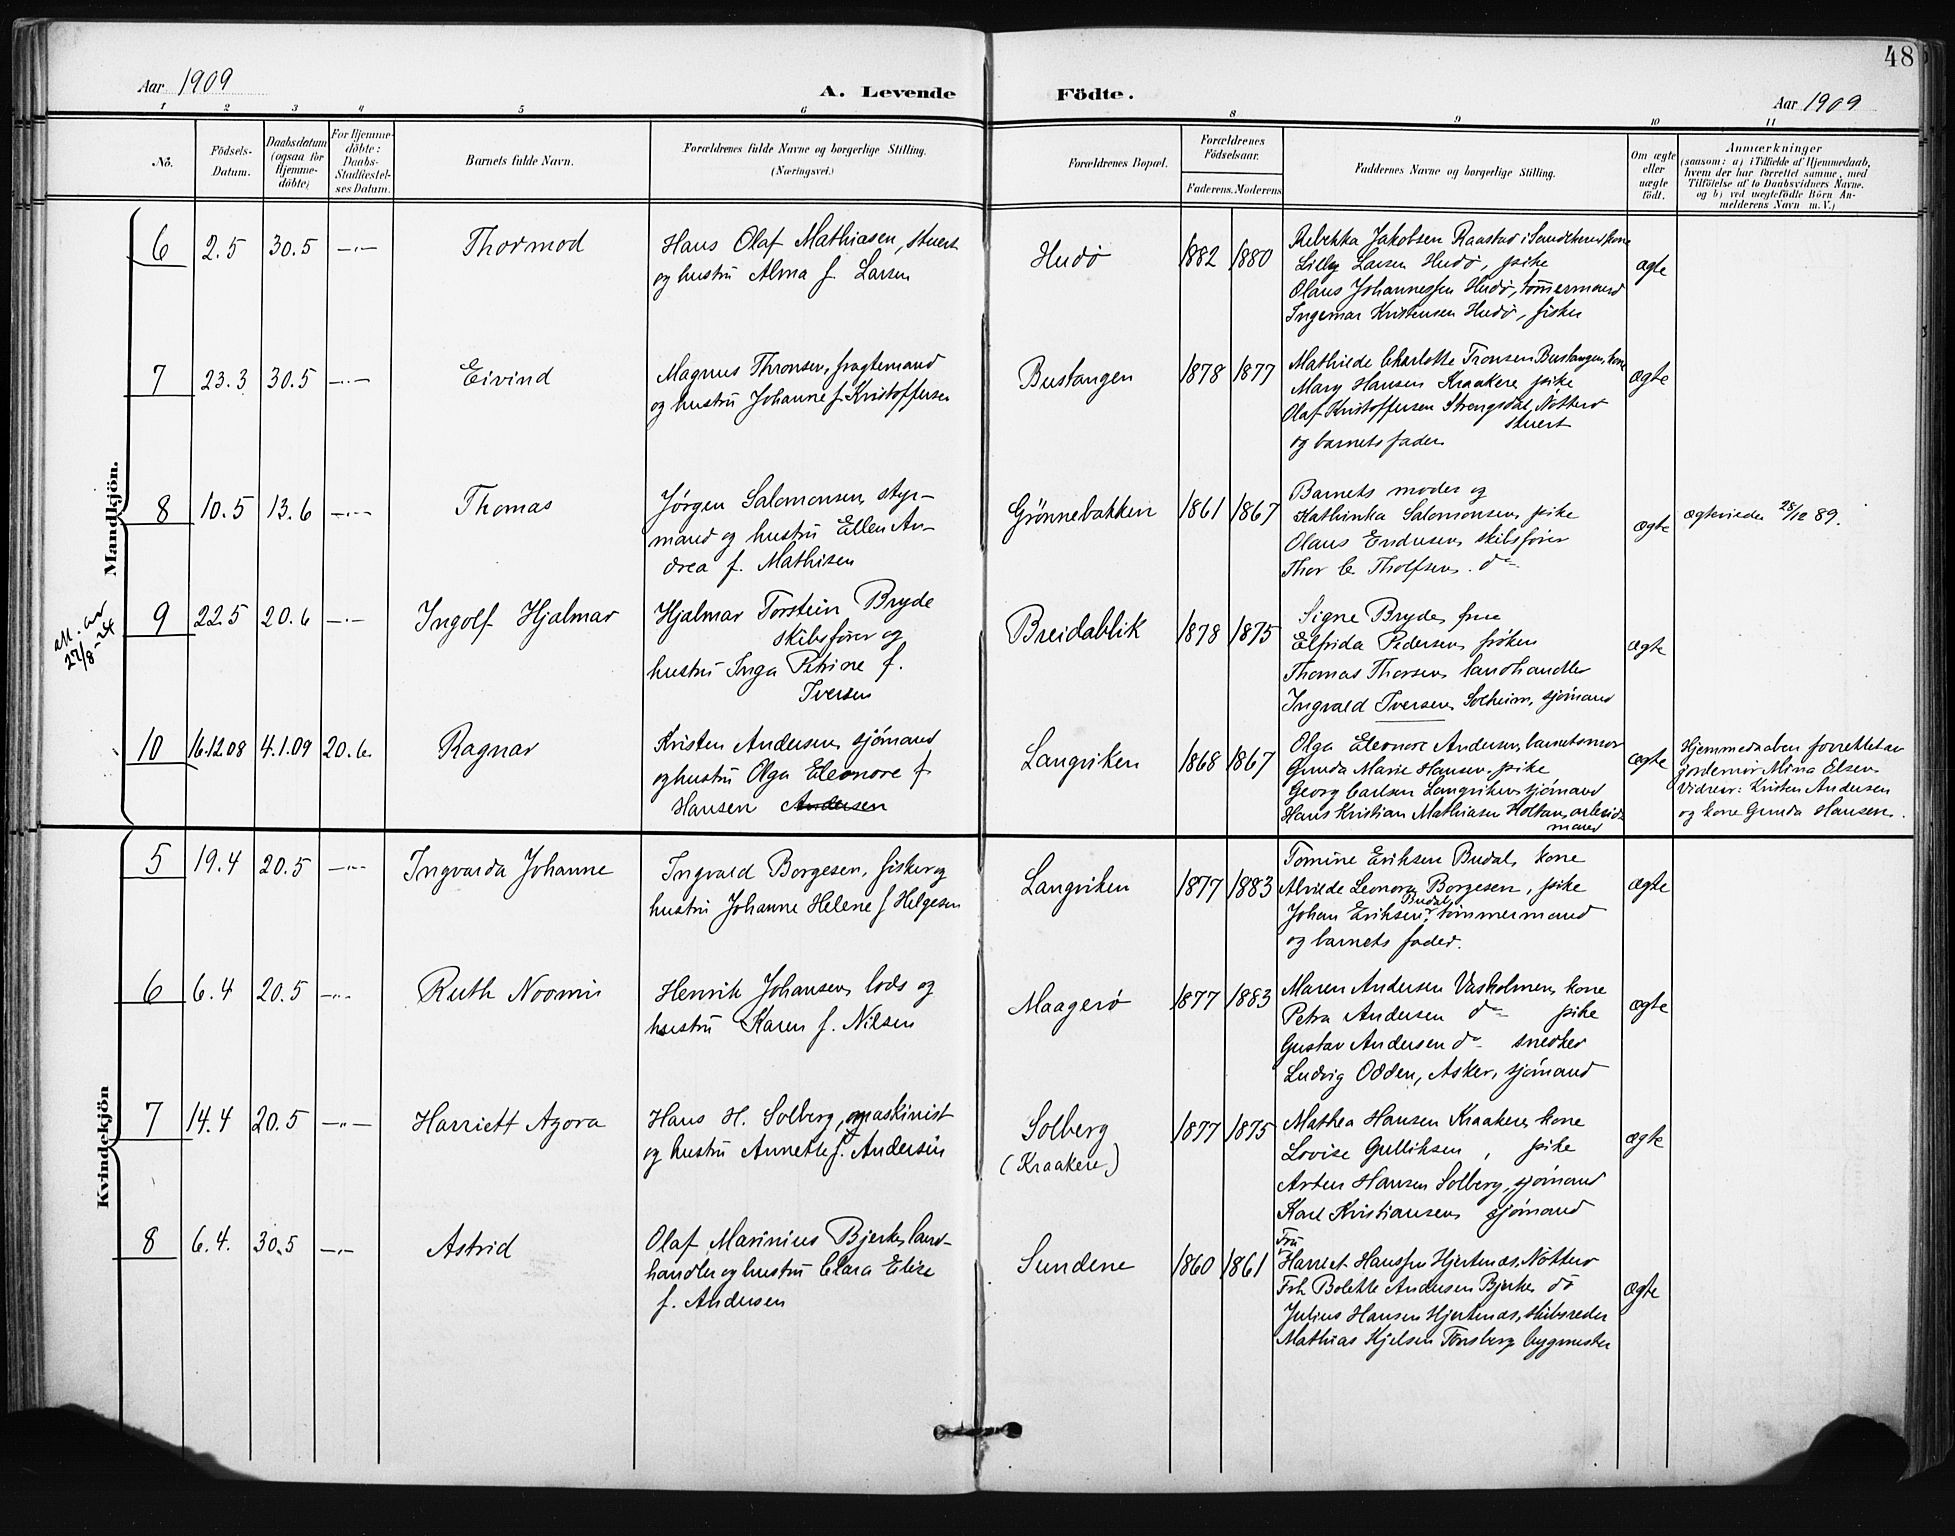 48
Aar 1909
A. Levende Födte.
Aar 1909
1 2 3 4 5 6 8 9 10 11
Nö.
Födsels-Datum.
Daabsdatum (ogsaa for Hjemme-döbte)
For Hjemme-döbte: Daabs-Stadfæstel-ses Datum.
Barnets fulde Navn.
Forældrenes fulde Navne og borgerlige Stilling.
(Næringsvei.)
Forældrenes Bopæl.
Forældrenes Födselsaar.
Faderens. Moderens
Faddernes Navne og borgerlige Stilling.
Om ægte eller uægte født.
Anmærkninger
(saasom: a) i Tilfælde af Hjemmedaab,
hvem der har forrettet samme, med
Tilföielse af to Daabsvidners Navne.
og b) ved uægtefödte Börn An-
melderens Navn m. V.)
Mandkjön.
6 2.5 30.5 —„— Thormod
Hans Olaf Mathiasen, stuert
og hustru Alma f. Larsen
Hudø 1882 1880
Rebekka Jakobsen Raastad i Sandeherred, kone
Lilly Larsen Hudø, pike
Olaus Johannessen Hudø, tømmermand
Ingemar Kristensen Hudø, fisker
ægte
7 23.3 30.5 —„— Eivind
Magnus Thronsen, fragtemand
og hustru Johanne f. Kristoffersen
Bustangen 1878 1877
Mathilde Charlotte Tronsen Bustangen, kone
Mary Hansen Kraakere pike
Olaf Kristoffersen Strengsdal, Nøtterø
stuert
og barnets fader
ægte
8 10.5 13.6 —„— Thomas
Jørgen Salomonsen, styr-
mand og hustru Ellen An-
drea f. Mathisen
Grønnebakken 1861 1867
Barnets moder og
Kathinka Salomonsen, pike
Olaus Endresen, skibsfører
Thor C. Tholfsen. do
ægte
Ægteviede 28/12 89.
27/8-24
9 22.5 20.6 —„— Ingolf Hjalmar
Hjalmar Torstein Bryde
skibsfører og
hustru Inga Petrine f.
Iversen
Breidablik 1878 1875
Signe Bryde, frue
Elfrida Pedersen, frøken
Thomas Thorsen, landhandler
Ingvald Iversen, Solheim, sjømand
ægte
10 16.12.08 4.1.09 20.6 Ragnar
Kristen Andersen, sjømand
og hustru Olga Eleonore f.
Hansen Andersen
Langviken 1868 1867
Olga Eleonore Andersen, barnets mor
Gunda Marie Hansen, pike
Georg Carlsen Langviken, sjømand
Hans Kristian Mathiasen Holtan, arbeids
mand
ægte
Hjemmedaaben forrettet av
jordemor Mina Elsen
Vidner: Kristen Andersen
og kone Gunda Hansen.
Kvindekjön
5 19.4 20.5 —„— Ingvarda Johanne
Ingvald Borgesen, fisker og
hustru Johanne Helene f. Helgesen
Langviken 1877 1883
Tomine Eriksen Budal, kone
Alvilde Leonora Borgesen, pike
Budal,
Johan Eriksen, tømmermand
og barnets fader.
ægte
6 6.4 20.5 —„— Ruth Noomi
Henrik Johansen, lods og
hustru Karen f. Nilsen
Maagerø 1877 1883
Maren Andersen Vasholmen, kone
Petra Andersen do pike
Gustav Andersen do snedker
Ludvig Odden, Asker, sjømand
ægte
7 14.4 20.5 —„— Harriett Azora
Hans H. Solberg, maskinist
og hustru Annette f. Andersen
Solberg
(Kraakere)
1877 1875
Mathea Hansen Kraakere, kone
Lovise Gulliksen, pike
Anten Hansen Solberg, sjømand
Karl Kristiansen sjømand
ægte
8 6.4. 30.5 —„— Astrid
Olaf Marinius Bjerke, land-
handler og hustru Clara Elise
f. Andersen
Sundene 1860 1861
Fru
Harriet Hansen Hjertnæs, Nøtterø
Frk Bolette Andersen Bjerke do
Julius Hansen Hjertnæs, skibsreder
Mathias Kjelsen Tønsberg bygmester
ægte